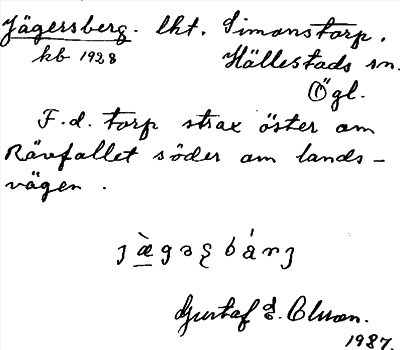 Jägersberg. lht. Simonstorp.
kb 1928 Hällestads sn.
Ögl.
F.d. torp strax öster om
Rävfallet söder om lands-
vägen.
Gustaf E. Olsson.
1987.